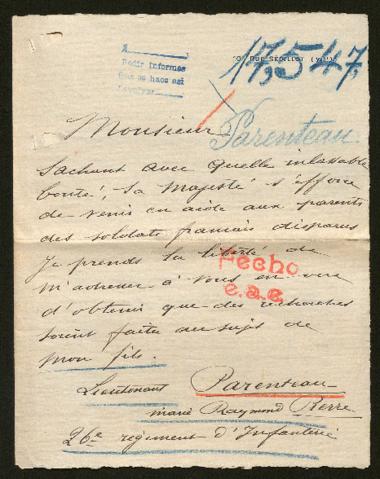 Pedir informes
RUE SÉDILLOT (VIIe)
17,547,
Parenteau
Monsieur
Sachant avec quelle inlassable
bonté, Sa Majesté s'efforce
de venir en aide aux parents
des soldats français disparus
Je prends la liberté de
Fecho
m'adresser à vous en vue
d'obtenir que des recherches
soient faites au sujet de
mon fils.
Lieutenant Parenteau
Marie Raymond Pierre
26e régiment d'Infanterie